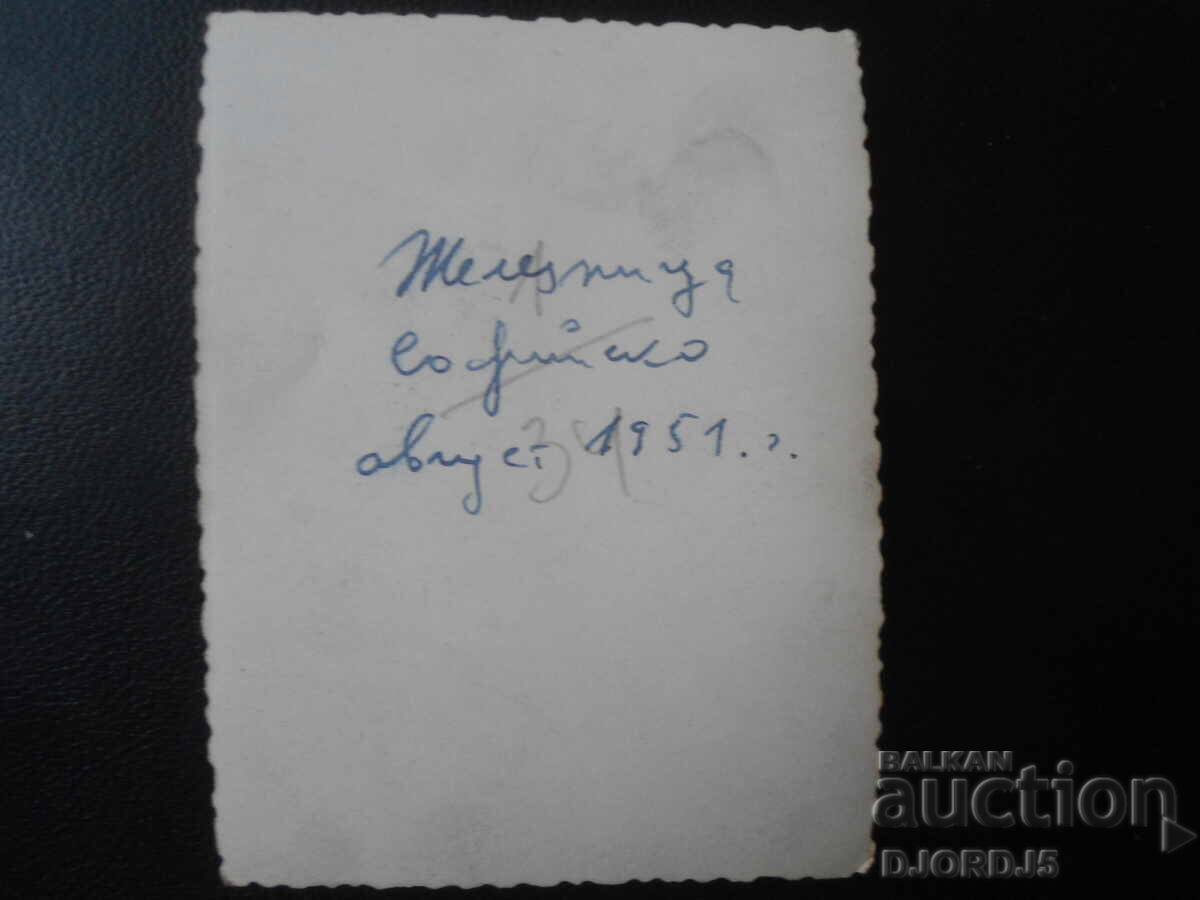 Железница
Софийско
август 1951.г.
34
BALKAN
auction
DJORDJ5